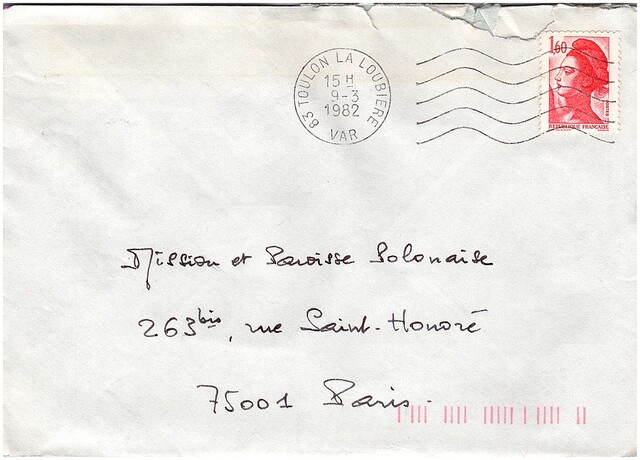 83 TOULON LA LOUBIERE
15 H
9-3
1982
VAR
1,60
REPUBLIQUE FRANÇAISE
Mission et Paroisse Polonaise
263bis, rue Saint-Honoré
75001 Paris.